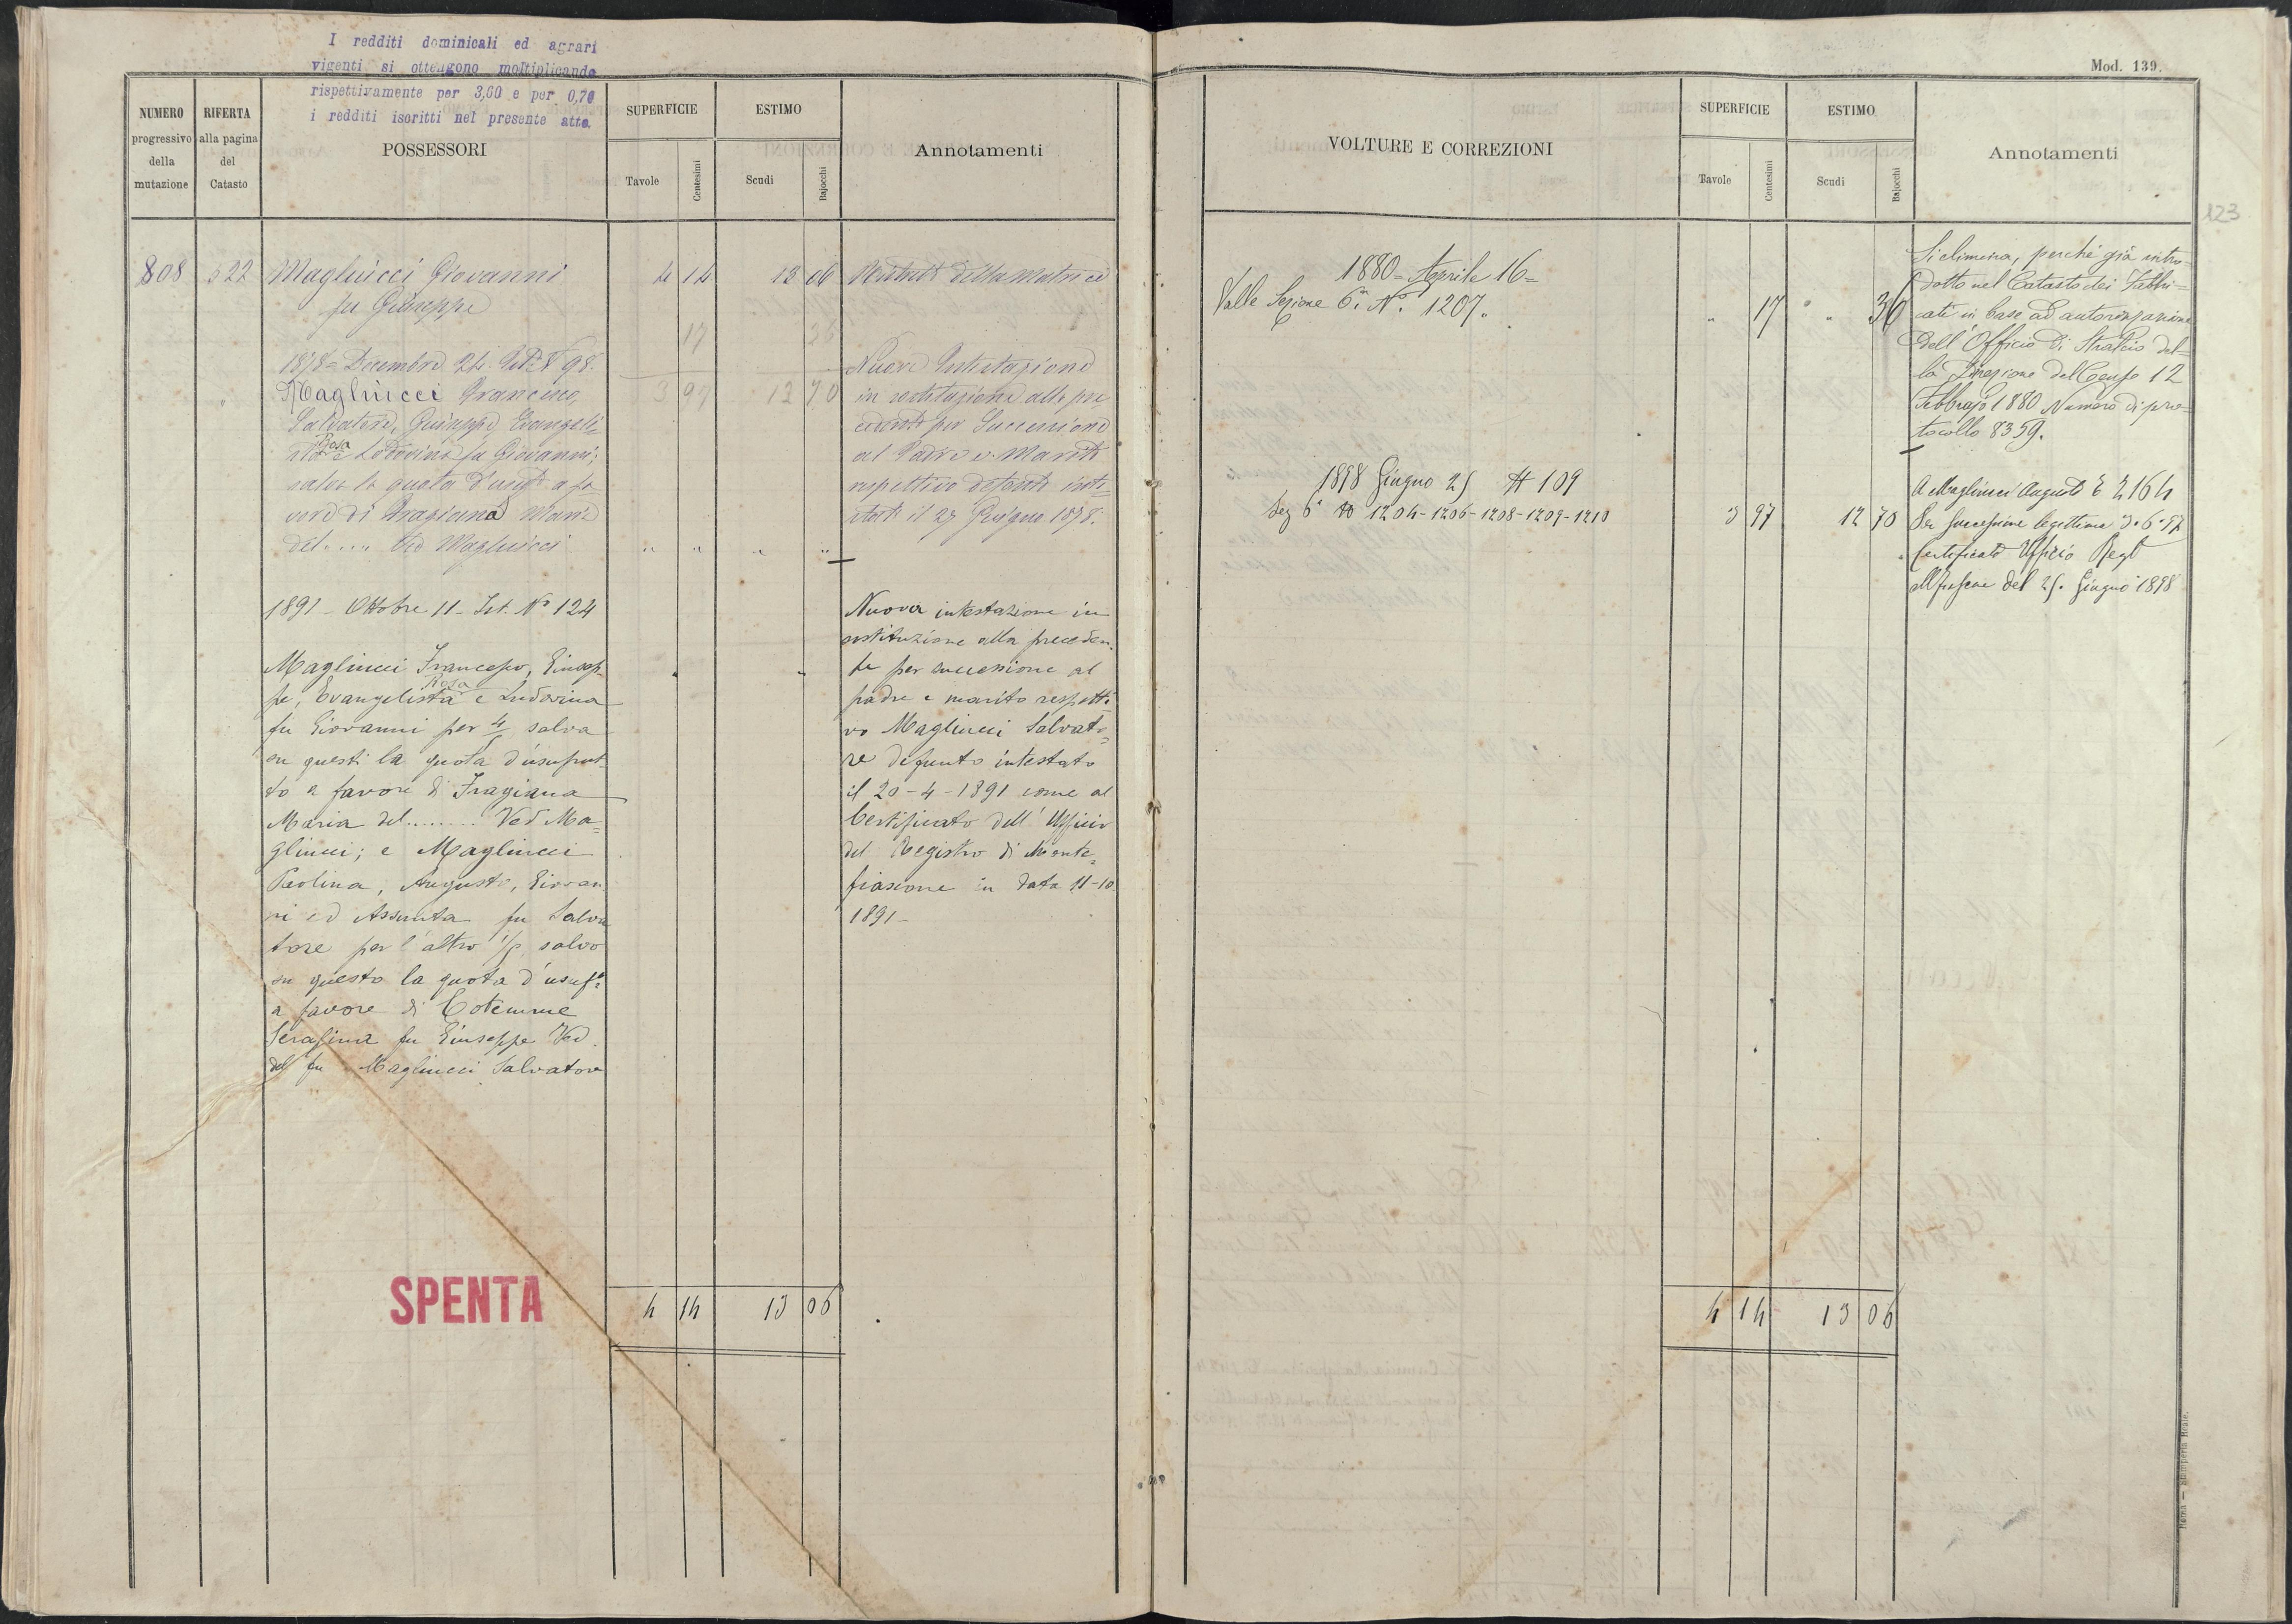 I redditi dominicali ed agrari
vigenti si ottengono moltiplicando
rispettivamente per 3,60 e per 0,70
i redditi iscritti nel presente atto.
NUMERO
progressivo
della
mutazione
RIFERTA
alla pagina
del
Catasto
POSSESSORI
SUPERFICIE
Tavole
Centesimi
ESTIMO
Scudi
Bajocchi
Annotamenti
808 522 Magliucci Giovanni 4 14 13 06
fu Giuseppe
17 36
1878 = Decembre 24. N° 98.
Magliucci Francesco, 3 97 12 70
Salvatore, Giuseppe Evangeli=
Rosa
sta e Lodovina fu Giovanni;
salva la quota d'usuf° a fa
vore di Fragiana Maria
del .... Ved Magliucci " " " "
1891 - Ottobre 11 - Let. N° 124
Magliucci Francesco, Giusep
Rosa
pe, Evangelista e Ludovina
fu Giovanni per 4/5 salva
su questi la quota d'usufrut-
to a favore di Fragiana
Maria del ........ Ved Ma=
gliucci; e Magliucci
Paolina, Augusto, Giovan
ni ed Assunta fu Salva
tore per l'altro 1/5 salvo
su questo la quota d'usuf°
a favore di Cotemme
Serafina fu Giuseppe Ved.
del fu Magliucci Salvatore
SPENTA
4 14 13 06
della Matrice
Nuova Intestazione
in sostituzione alla pre
cedente per Successione
al Padre e Marito
rispettivo defunto inte=
stato il 27 Giugno 1878.
Nuova intestazione in
sostituzione alla preceden-
te per successione al
padre e marito rispetti
vo Magliucci Salvato=
re defunto intestato
il 20-4-1891 come al
Certificato dell' Ufficio
del Registro di Monte=
fiascone in data 11-10
1891 -
Mod. 139.
123
VOLTURE E CORREZIONI
SUPERFICIE
Tavole
Centesimi
ESTIMO
Scudi
Bajocchi
Annotamenti
1880 = Aprile 16 =
Valle Sezione 6ª N°. 1207. " 17 " 36
Si elimina, perché già intro=
dotto nel Catasto dei Fabbri=
cati in base ad autorizzazione
dell' Officio di Stralcio del=
la Direzione del Censo 12
Febbrajo 1880 Numero di pro=
tocollo 8359.
1898 Giugno 25 N 109
Sez 6ª N 1204-1206-1208-1209-1210 3 97 12 70
A Magliucci Augusto E 2164
Per successione legittima
Certificato Ufficio Reg°
del 25. Giugno 1898
4 14 13 06
Roma — Stamperia Reale.